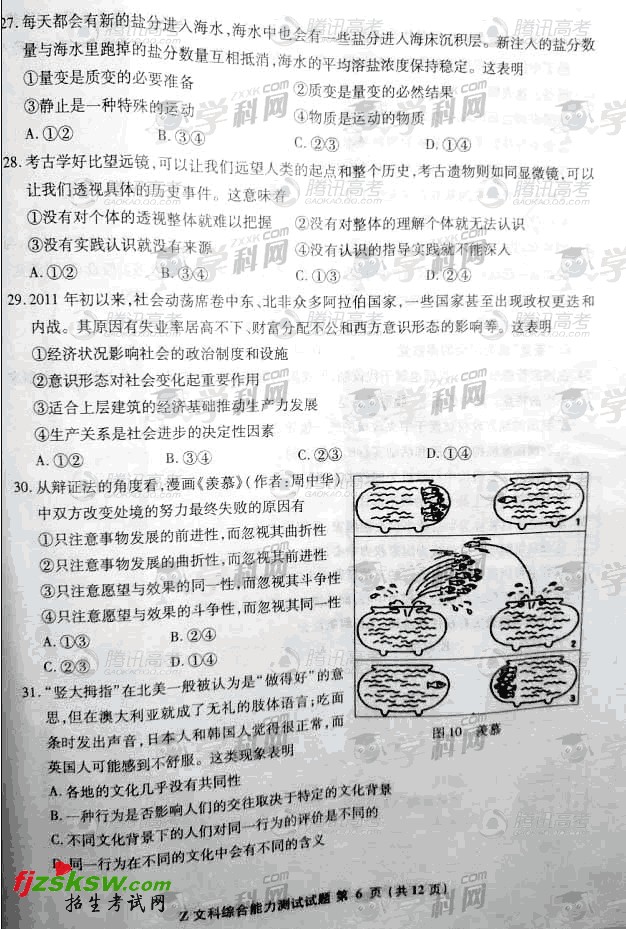 27. 每天都会有新的盐分进入海水，海水中也会有一些盐分进入海床沉积层。新注入的盐分数
量与海水里跑掉的盐分数量互相抵消，海水的平均溶盐浓度保持稳定。这表明
①量变是质变的必要准备 ②质变是量变的必然结果
③静止是一种特殊的运动 ④物质是运动的物质
A. ①② B. ③④ C. ②③ D. ①④
28. 考古学好比望远镜，可以让我们远望人类的起点和整个历史，考古遗物则如同显微镜，可以
让我们透视具体的历史事件。这意味着
①没有对个体的透视整体就难以把握 ②没有对整体的理解个体就无法认识
③没有实践认识就没有来源 ④没有认识的指导实践就不能深入
A. ①② B. ③④ C. ①③ D. ②④
29. 2011 年初以来，社会动荡席卷中东、北非众多阿拉伯国家，一些国家甚至出现政权更迭和
内战。其原因有失业率居高不下、财富分配不公和西方意识形态的影响等。这表明
①经济状况影响社会的政治制度和设施
②意识形态对社会变化起重要作用
③适合上层建筑的经济基础推动生产力发展
④生产关系是社会进步的决定性因素
A. ①② B. ③④ C. ②③ D. ①④
30. 从辩证法的角度看，漫画《羡慕》（作者：周中华）
中双方改变处境的努力最终失败的原因有
①只注意事物发展的前进性，而忽视其曲折性
②只注意事物发展的曲折性，而忽视其前进性
③只注意愿望与效果的同一性，而忽视其斗争性
④只注意愿望与效果的斗争性，而忽视其同一性
A. ①③ B. ②④
C. ②③ D. ①④
1
2
3
图 10 羡慕
31. “竖大拇指”在北美一般被认为是“做得好”的意
思，但在澳大利亚就成了无礼的肢体语言；吃面
条时发出声音，日本人和韩国人觉得很正常，而
英国人可能感到不舒服。这类现象表明
A. 各地的文化几乎没有共同性
B. 一种行为是否影响人们的交往取决于特定的文化背景
C. 不同文化背景下的人们对同一行为的评价是不同的
D. 同一行为在不同的文化中会有不同的含义
Z 文科综合能力测试试题 第 6 页（共 12 页）
fjzsksw.com
招生考试网
学科网
ZXXK.COM
腾讯高考
GAOKAO.QQ.COM